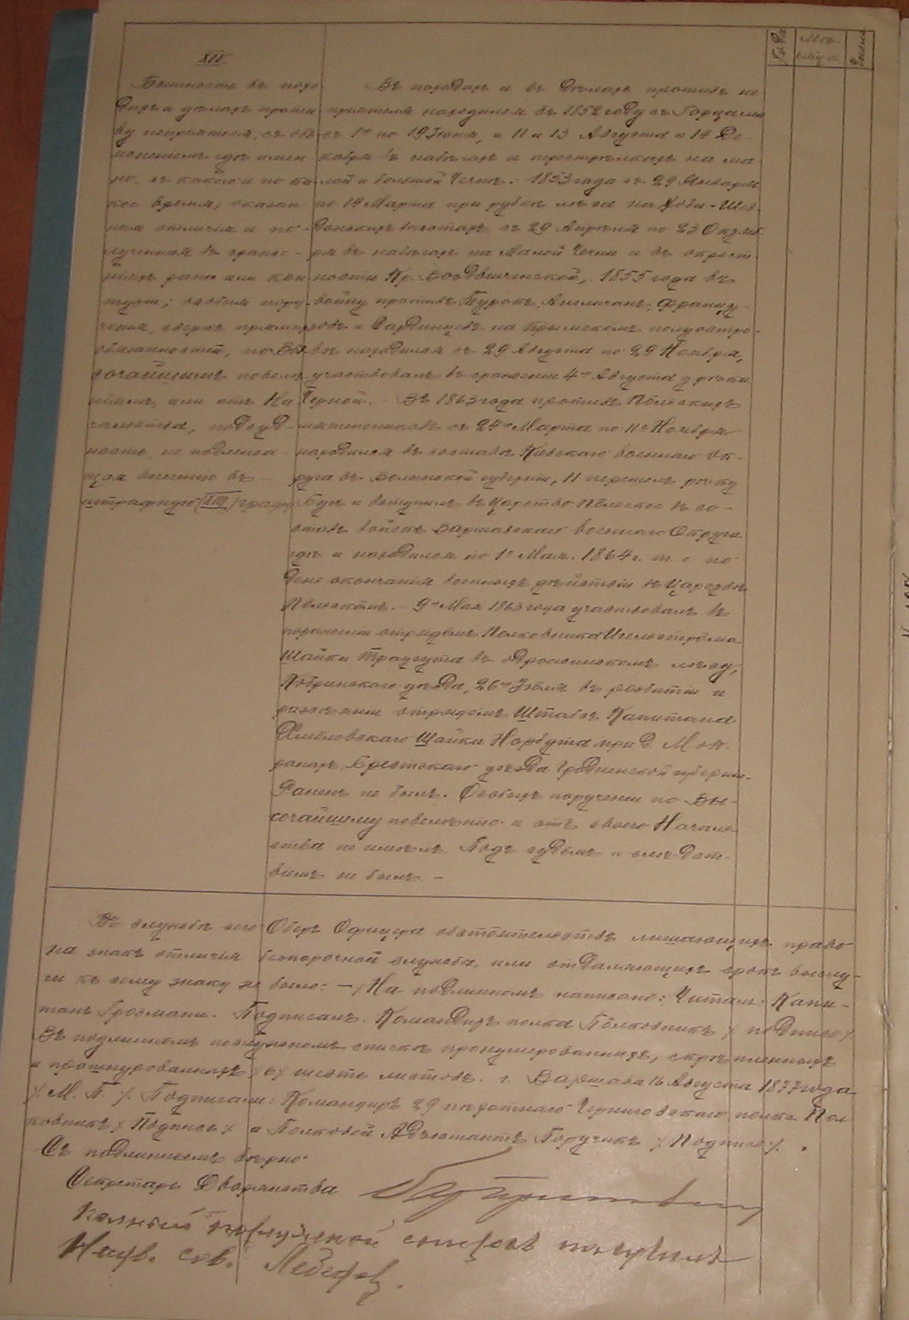 XIV.
Бытность въ похо-
дахъ и дѣлахъ проти-
ву непріятеля, съ объ-
ясненіемъ гдѣ имен-
но, съ какого и по ка-
кое время; оказан-
ныя отличія и по-
лученныя въ сраже-
ніяхъ раны или кон-
тузіи; особыя пору-
ченія, сверхъ прямыхъ
обязанностей, по Вы-
сочайшимъ повелѣ-
ніямъ или отъ На-
чальства,
штрафную XIII графу
Въ походахъ и въ дѣлахъ противъ не-
пріятеля находился въ 1852 году съ Горцами
съ 1го по 19 Іюня, и 11 и 13 Августа и 14 Де-
кабря въ набѣгахъ и перестрѣлкахъ на Ма-
лой и большой Чечнѣ. 1853 года съ 29 Января
по 14 Марта при рубкѣ лѣса на Хоби-Шав-
донскихъ высотахъ съ 29 Апрѣля по 23 Октяб-
ря въ набѣгахъ на Малой Чечни и въ окрест-
ности Кр. Воздвиженской, 1855 года въ
войну противъ Турокъ, Англичанъ, Францу-
зовъ и Сардинцевъ на Крымскомъ полуостро-
вѣ находился съ 29 Августа по 29 Ноября,
участвовалъ въ сраженіи 4го Августа у рѣчки
Черной. – Въ 1863 года противъ Польскихъ
мятежниковъ съ 24го Марта по 11е Ноября
находился въ составѣ Кіевскаго военнаго Ок-
руга въ Волынской губерніи, 11 перешелъ рѣчку
Бугъ и вступилъ въ Царство Польское въ со-
ставъ войскъ Варшавскаго военнаго Округа
гдѣ и находился по 1е Мая 1864 г. т. е. по
день окончанія военныхъ дѣйствій въ Царствѣ
Польскомъ. – 9го Мая 1863 года участвовалъ въ
пораженіи отрядомъ Полковника
Шайки Траугута въ лѣсу,
Кобринскаго уѣзда, 26го Іюля въ разбитіи и
разсѣяніи отрядомъ Штабсъ Капитана
Шайки Нарбута при д.
Брестскаго уѣзда Гродненской губерніи.
Раненъ не былъ. Особыхъ порученій по Вы-
сочайшему повелѣнію и отъ своего Началь-
ства не имѣлъ. Подъ судомъ и слѣдст-
віемъ не былъ. –
Въ службѣ сего Оберъ Офицера обстоятельствъ, лишающихъ права
на знакъ отличія безпорочной службы, или отдаляющихъ срокъ выслу-
ги къ сему знаку не было: – На подлинномъ написано: Читалъ Капи-
танъ Гросманъ. Подписалъ Командиръ полка Полковникъ /подпись/.
Въ подлинномъ послужномъ спискѣ пронумерованныхъ, скрѣпленныхъ
и прошнурованныхъ /6/ шесть листовъ. г. Варшава 16 Августа 1877 года
/М. П./ Подписали: Командиръ 29 пѣхотнаго Черниговскаго полка Пол-
ковникъ /Подпись/ и Полковой Адъютантъ Поручикъ /Подпись/.
Съ подлиннымъ вѣрно:
Секретарь Дворянства
послужной списокъ получилъ